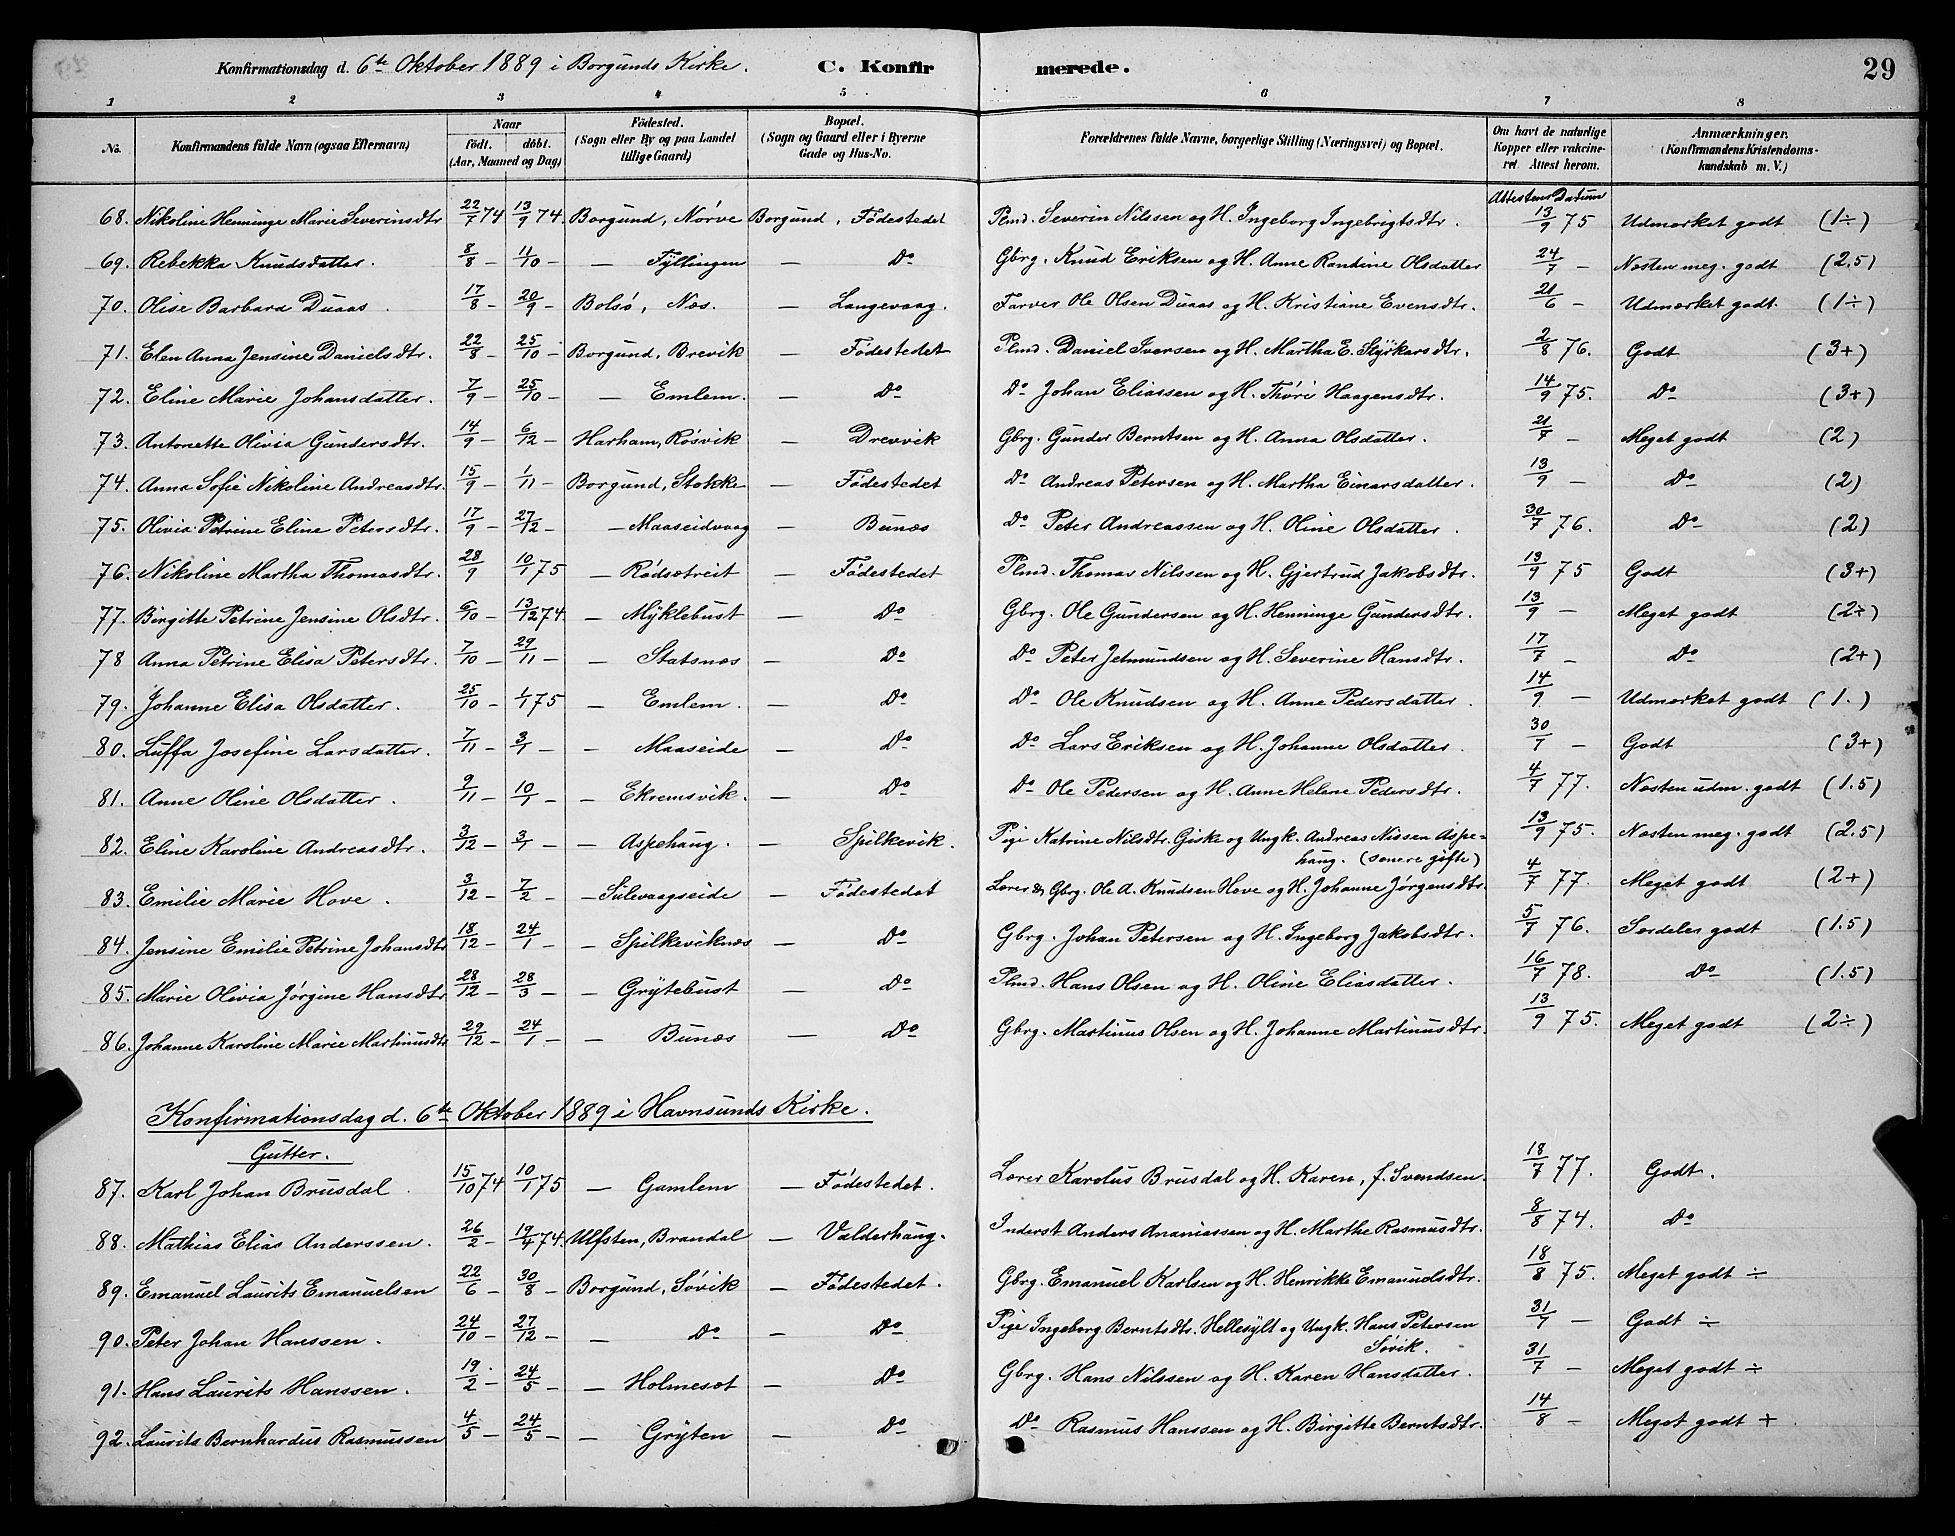 Konfirmationsdag d. 6te Oktober 1889 i Borgunds Kirke. C. Konfir merede. 29
1 2 3 4 5 6 7 8
No. Konfirmandens fulde Navn (ogsaa Efternavn) Naar Födt. döbt. (Aar, Maaned og Dag) Födested. (Sogn eller By og paa Landet tillige Gaard) Bopæl. (Sogn og Gaard eller i Byerne Gade og Hus-No. Forældrenes fulde Navne, borgerlige Stilling (Næringsvei) og Bopæl. Om havt de naturlige Kopper eller vakcineret. Attest herom. Anmærkninger. (Konfirmandens Kristendomskundskab m. V.)
Attestens Datum
68. Nikoline Henninge Marie Severinsdtr 22/7 74 13/9 74. Borgund, Nørve Borgund, Fødestedet Plmd. Severin Nilssen og H. Ingeborg Ingebrigtsdtr. 13/9 75 Udmærket godt (1÷)
69. Rebekka Knudsdatter. 8/8 – 11/10 – – Fyllingen – Do Gbrg. Knud Eriksen og H. Anne Randine Olsdatter 24/7 – Næsten meg. godt (2.5)
70. Olise Barbara Duaas. 17/8 – 20/9 – Bolsø, Næs. – Langevaag. Farver Ole Olsen Duaas og H. Kristiane Evensdtr. 21/6 – Udmærket godt. (1÷)
71. Elen Anna Jensine Danielsdtr. 22/8 – 25/10 – Borgund, Brevik – Fødestedet Plmd. Daniel Iversen og H. Martha E. Styrkarsdtr. 2/8 76. Godt (3+)
72. Eline Marie Johansdatter. 7/9 – 25/10 – – Emlem. – Do Do Johan Eliassen og H. Thøri Haagensdtr. 14/9 75. Do (3+)
73. Antonette Olivia Gundersdtr. 14/9 – 6/12 – Harham, Røsvik – Drevvik Gbrg. Gunder Berntsen og H. Anna Olsdatter. 21/7 – Meget godt (2)
74. Anna Sofie Nikoline Andreasdtr. 15/9 – 1/11 – Borgund, Stokke – Fødestedet Do Andreas Petersen og H. Martha Einarsdatter. 13/9 – Do (2)
75. Olivia Petrine Eline Petersdtr. 17/9 – 27/2 – – Maaseidvaag – Bunæs Do Peter Andreassen og H. Oline Olsdatter. 30/7 76. Do (2)
76. Nikoline Martha Thomasdtr. 28/9 10/1 75 – Rødsætreit – Fødestedet Plmd. Thomas Nilssen og H. Gjertrud Jakobsdtr. 13/9 75 Godt (3+)
77. Birgitte Petrine Jensine Olsdtr. 6/10 – 13/12 74. – Myklebust – Do Gbrg. Ole Gundersen og H. Henninge Gundersdtr. 13/9 – Meget godt (2÷)
78 Anna Petrine Elisa Petersdtr. 7/10 – 29/11 – – Statsnæs – Do Do Peter Jetmundsen og H. Severine Hansdtr. 17/7 – Do (2+)
79. Johanne Elisa Olsdatter. 25/10 – 1/1 75 – Emlem. – Do Do Ole Knudsen og H. Anne Pedersdatter. 14/9 – Udmærket godt (1.)
80. Luffa Josefine Larsdatter. 7/11 – 3/1 – – Maaseide – Do Do Lars Eriksen og H. Johanne Olsdatter. 30/7 – Godt (3+)
81. Anne Oline Olsdatter. 9/11 – 10/1 – – Ekremsvik. – Do Do Ole Pedersen og H. Anne Helene Pedersdtr. 4/7 77. Næsten udm. godt (1.5)
82. Eline Karoline Andreasdtr. 3/12 – 3/1 – – Aspehaug. – Spilkevik. Pige Katrine Nilsdtr. Giske og Ungk. Andreas Nissen Aspe- 13/9 75. Næsten meg. godt (2.5)
haug. (senere gifte)
83. Emilie Marie Hove. 3/12 – 7/2 – – Sulevaagseide – Fødestedet Lærer & Gbrg. Ole A. Knudsen Hove og H. Johanne Jørgensdtr. 4/7 77. Meget godt (2+)
84. Jensine Emilie Petrine Johansdtr 18/12 – 24/1 – – Spilkeviknæs – Do Gbrg. Johan Petersen og H. Ingeborg Jakobsdtr. 5/7 76. Særdeles godt (1.5)
85. Marie Olivia Jørgine Hansdtr 28/12 – 28/3 – – Grytebust – Do Plmd. Hans Olsen og H. Oline Eliasdatter. 16/7 78. Do (1.5)
86. Johanne Karoline Marie Martinusdtr 29/12 – 24/1 – – Bunæs – Do Gbrg. Martinus Olsen og H. Johanne Martinusdtr. 13/9 75. Meget godt (2÷)
Konfirmationsdag d. 6te Oktober 1889 i Havnsunds Kirke.
Gutter.
87. Karl Johan Brusdal. 15/10 74 10/1 75 – Gamlem – Fødestedet. Lærer Karolus Brusdal og H. Karen, f. Svendsen. 18/7 77. Godt.
88. Mathias Elias Anderssen. 26/2 – 19/4 74. Ulfsten, Brandal – Valderhaug. Inderst Anders Ananiassen og H. Marthe Rasmusdtr. 8/8 74. Do
89. Emanuel Laurits Emanuelsen 22/6 – 30/8 – Borgund, Søvik – Fødestedet. Gbrg. Emanuel Karlsen og H. Henrikke Emanuelsdtr. 18/8 75. Meget godt ÷
90. Peter Johan Hanssen. 24/10 – 27/12 – – Do – Do Pige Ingeborg Berntsdtr. Hellesylt og Ungk. Hans Petersen 31/7 – Godt ÷
Søvik.
91. Hans Laurits Hanssen. 19/2 – 24/5 – – Holmesæt – Do Gbrg. Hans Nilssen og H. Karen Hansdatter. 31/7 – Meget godt ÷
92. Laurits Bernhardus Rasmussen 4/5 – 24/5 – – Gryten – Do Do Rasmus Hanssen og H. Birgitte Berntsdtr. 14/8 – Meget godt +